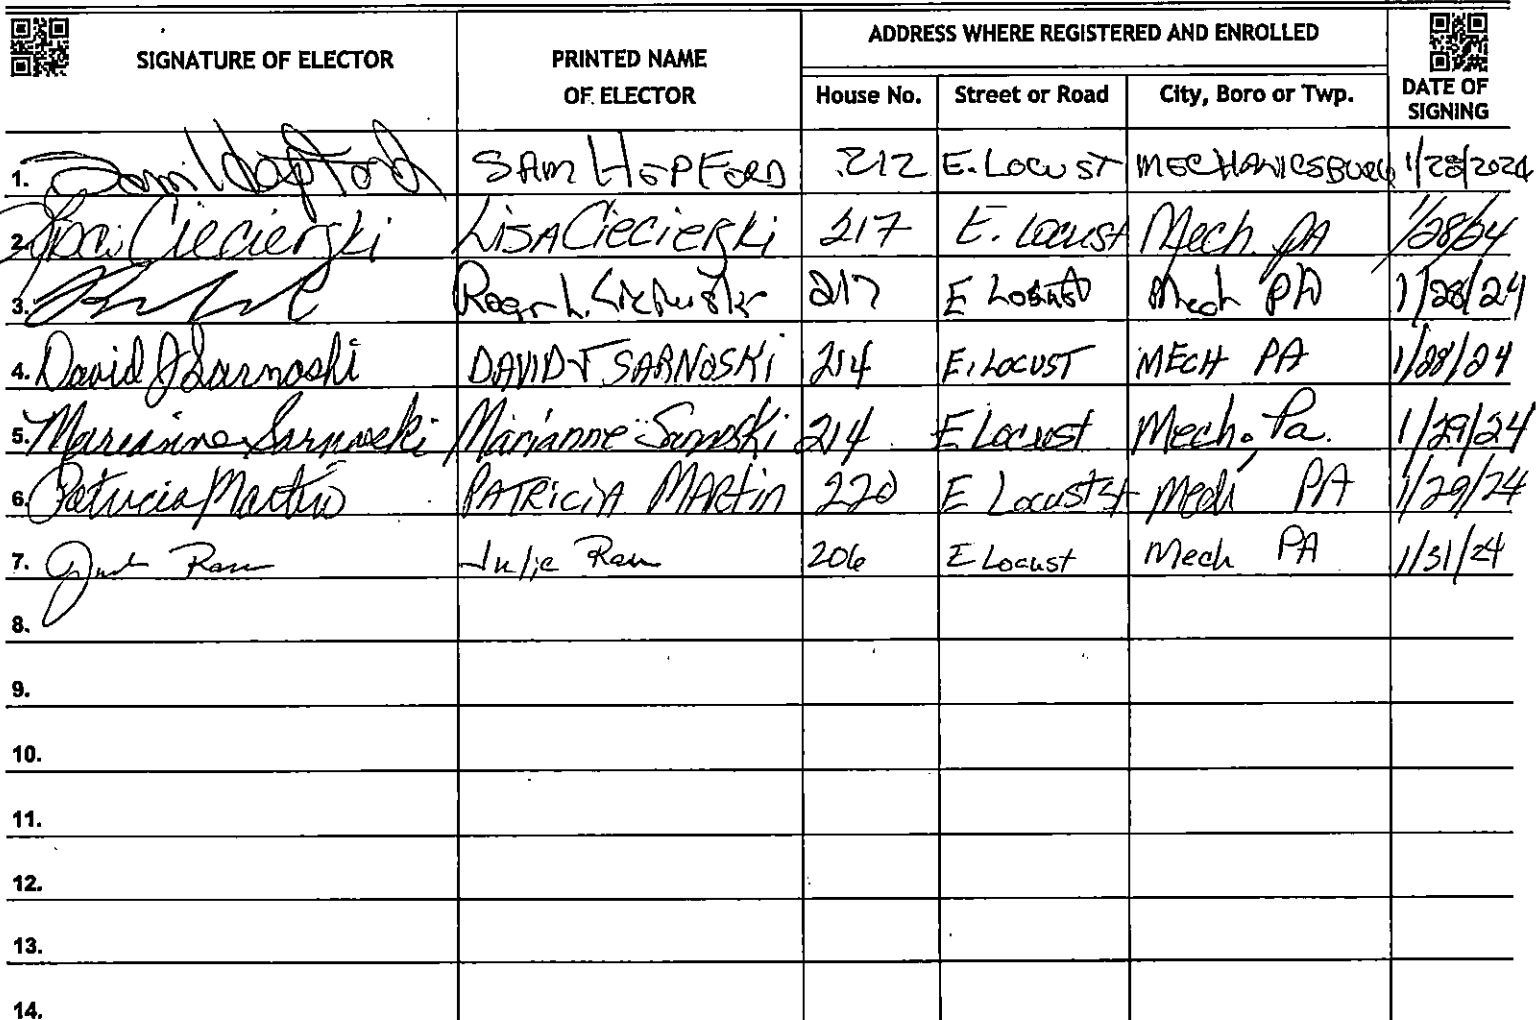 SIGNATURE OF ELECTOR
PRINTED NAME
OF ELECTOR
ADDRESS WHERE REGISTERED AND ENROLLED
House No. Street or Road City, Boro or Twp.
DATE OF
SIGNING
1. Sam Hopford SAM HOPFORD 212 E. LOCUST MECHANICSBURG 1/28/2024
2. Lisa Ciecierski LISA CIECIERSKI 217 E. Locust Mech. PA 1/28/24
3. Roger L. 217 E Locust Mech PA 1/28/24
4. David J Sarnoski DAVID J SARNOSKI 214 E. LOCUST MECH PA 1/28/24
5. Marianne Sarnoski Marianne Sarnoski 214 E Locust Mech. Pa. 1/29/24
6. Patricia Martin PATRICIA MARTIN 220 E Locust St Mech PA 1/29/24
7. Julie Rau 206 E Locust Mech PA 1/31/24
8.
9.
10.
11.
12.
13.
14.